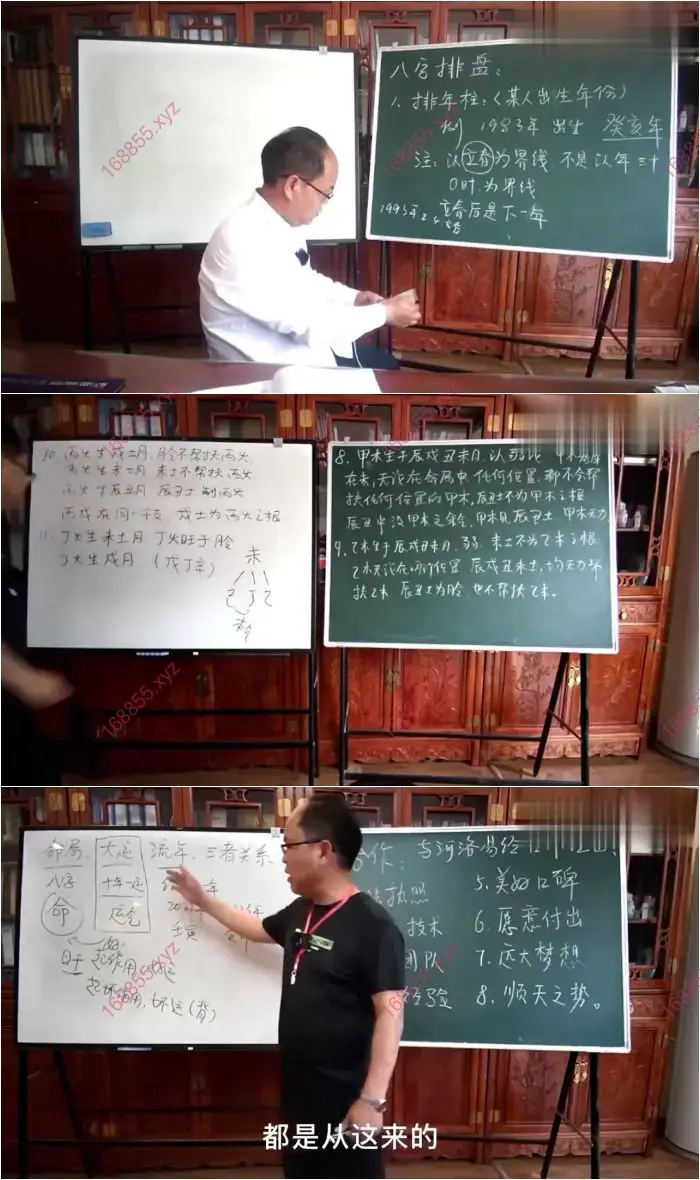 八字排盘：
1、排年柱：（某人出生年份）
例 1983年 出生 癸亥年
注：以立春为界线 不是以年三十
0时为界线
立春后是下一年
168855.xyz
168855.xyz
10. 丙火生戌土月，脸不帮扶丙火
丙火生未土月 未土不帮扶丙火
丙火生辰丑月 辰丑土制丙火
丙戌在同一干支，戌土为丙火之根
11. 丁火生未土月 丁火旺于脸
丁火生戌月 （戊丁辛）
未
己丁乙
8. 甲木生于辰戌丑未月，以弱论
在未，无论在命局中任何位置，都不会帮
扶任何位置的甲木，辰丑土不为甲木之根
甲木见辰丑土 甲木无力
9. 乙木生于辰戌丑未月，弱，未土不为乙木之根
乙木无论在何位置 辰戌丑未土，均无力帮
扶乙木 辰丑土为脸 也不帮扶乙木。
168855.xyz
168855.xyz
命局、大运 流年、三者关系
八字 十年一运 年
命 运气
日干 起好作用，好运
起坏作用，坏运（背）
作：与河洛易经
执照 5. 美好口碑
技术 6. 愿意付出
团队 7. 远大梦想
经验 8. 顺天之势。
168855.xyz
168855.xyz
都是从这来的